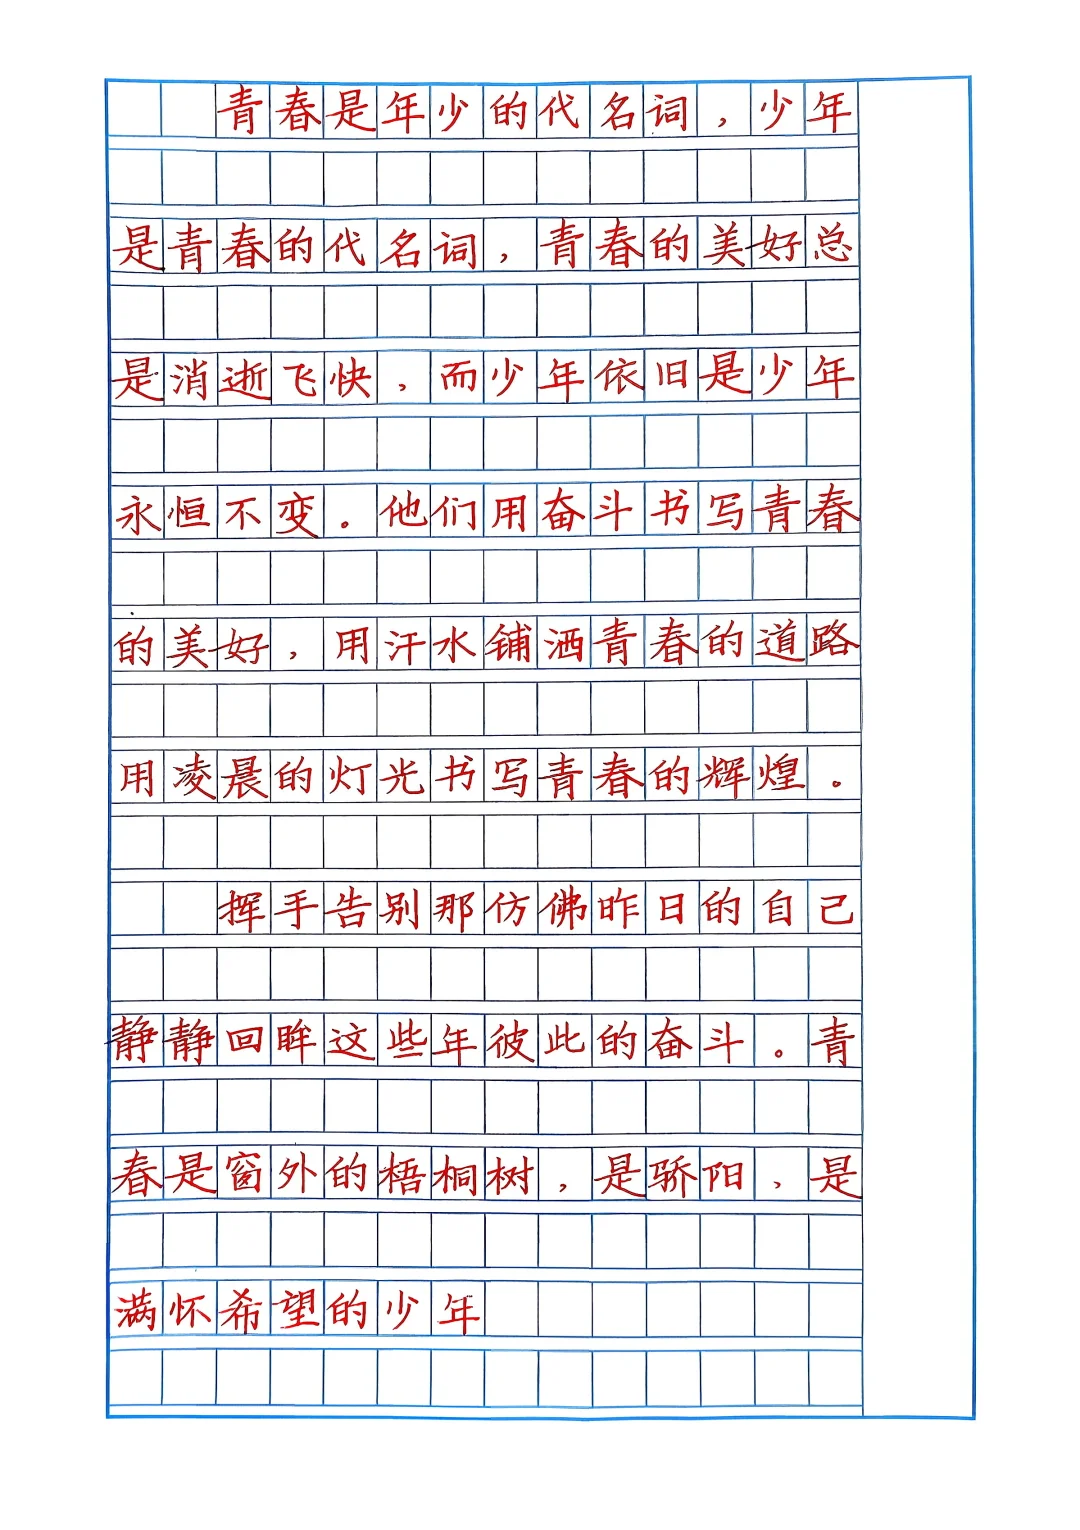 青春是年少的代名词，少年
是青春的代名词，青春的美好总
是消逝飞快，而少年依旧是少年
永恒不变。他们用奋斗书写青春
的美好，用汗水铺洒青春的道路
用凌晨的灯光书写青春的辉煌。
挥手告别那仿佛昨日的自己
静静回眸这些年彼此的奋斗。青
春是窗外的梧桐树，是骄阳、是
满怀希望的少年